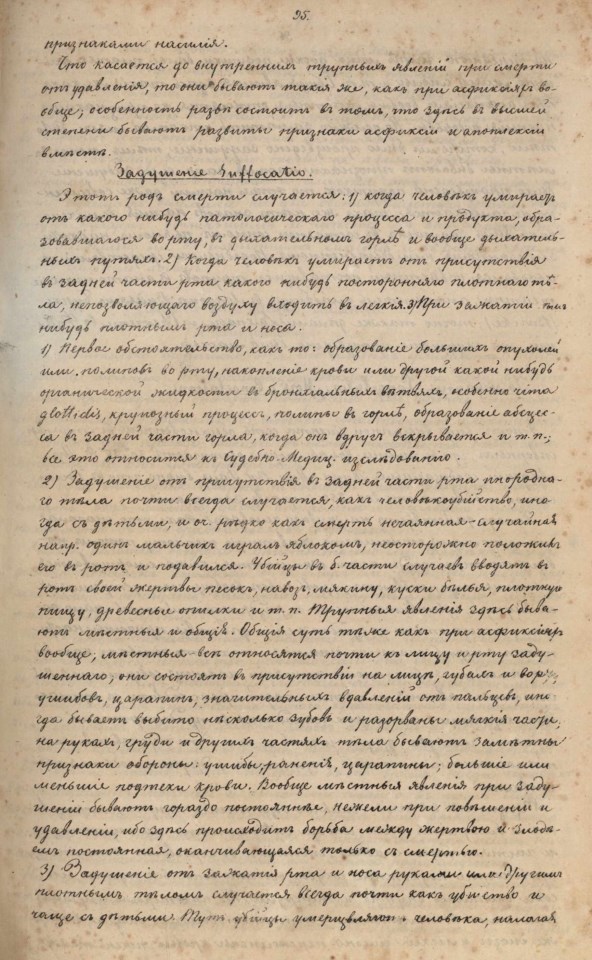 95.
признаками насилія.
Что касается до внутреннихъ трупныхъ явленій при смерти
отъ удавленія, то они бываютъ такія же, какъ при асфикціяхъ во-
обще; особенность развѣ состоитъ въ томъ, что здѣсь въ высшей
степени бываютъ развиты признаки асфиксіи и апоплексіи
вмѣстѣ.
Задушеніе Suffocatio.
Этотъ родъ смерти случается: 1) когда человѣкъ умираетъ
отъ какого нибудь патологическаго процесса и продукта, обра-
зовавшагося во рту, въ дыхательномъ горлѣ и вообще дыхатель-
ныхъ путяхъ. 2) Когда человѣкъ умираетъ отъ присутствія
въ задней части рта какого нибудь посторонняго плотнаго тѣ-
ла, непозволяющаго воздуху входить въ легкія. 3) При зажатіи
нибудь плотнымъ рта и носа.
1) Первое обстоятельство, какъ то: образованіе большихъ опухолей
или полиповъ во рту, накопленіе крови или другой какой нибудь
органической жидкости въ бронхіальныхъ вѣтвяхъ, особенно
glottidis, крупозный процессъ, полипы въ горлѣ, образованіе абсцес-
са въ задней части горла, когда онъ вдругъ вскрывается и т. п.;
все это относится къ Судебно-Медиц. изслѣдованію.
2) Задушеніе отъ присутствія въ задней части рта инородна-
го тѣла почти всегда случается, какъ человѣкоубійство, ино-
гда съ дѣтьми, и оч. рѣдко какъ смерть нечаянная-случайная
напр. одинъ мальчикъ игралъ яблокомъ, неосторожно положилъ
его въ ротъ и подавился. Убійцы въ б. части случаевъ вводятъ въ
ротъ своей жертвы песокъ, навозъ, мякину, куски бѣлья, плотную
пищу, древесные опилки и т. п. Трупныя явленія здѣсь быва-
ютъ мѣстныя и общія. Общія суть тѣже какъ при асфикціяхъ
вообще; мѣстныя всѣ относятся почти къ лицу и рту заду-
шеннаго; они состоятъ въ присутствіи на лицѣ, губахъ и во рту
ушибовъ, царапинъ, значительныхъ вдавленій отъ пальцевъ, ино-
гда бываетъ выбито нѣсколько зубовъ и разорваны мягкія части,
на рукахъ, груди и другихъ частяхъ тѣла бываютъ замѣтны
признаки обороны: ушибы, раненія, царапины; большіе или
меньшіе подтеки крови. Вообще мѣстныя явленія при заду-
шеніи бываютъ гораздо постояннѣе, нежели при повѣшеніи и
удавленіи, ибо здѣсь происходитъ борьба между жертвою и злодѣ-
емъ постоянная, оканчивающаяся только съ смертью.
3) Задушеніе отъ зажатія рта и носа руками или другимъ
плотнымъ тѣломъ случается всегда почти какъ убійство и
чаще съ дѣтьми. Тутъ убійцы умерщвляютъ человѣка, налагая